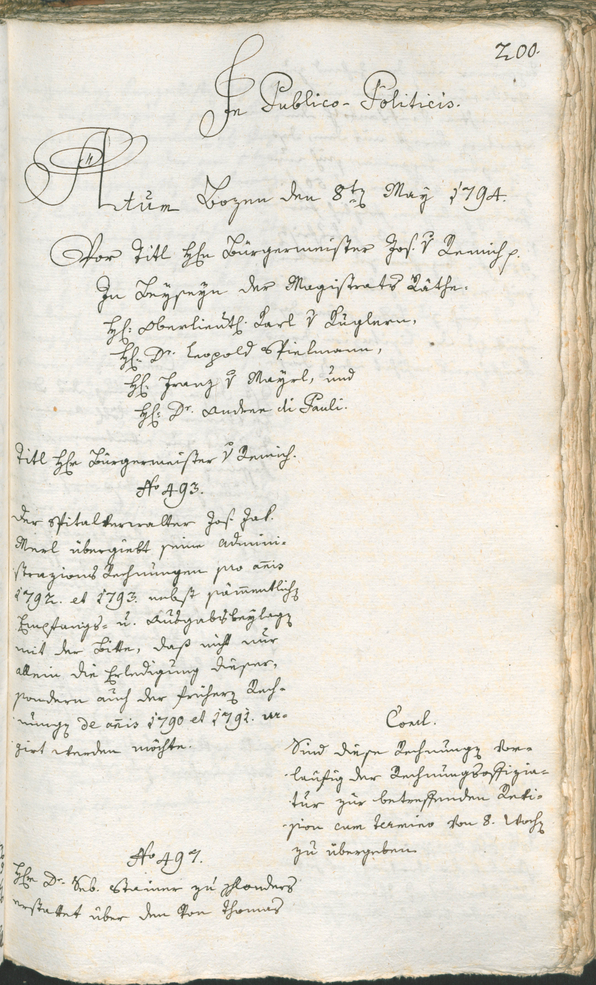 200.
In Publico-Politicis.
Actum Bozen den 8ten May 1794.
Vor Titl Hhn Bürgermeister Jos. v Remich p.
In Beyseyn der Magistrats Räthe.
Hh: Oberlieut: Karl v Küglern,
Hh: Dr. Leopold Spielmann,
Hh: Franz v Mayrl, und
Hh: Dr. Andree di Pauli.
Titl Hhr Bürgermeister v Remich.
No 493.
Der Spitalverwalter Jos. Jak.
Merl übergiebt seine admini-
strazions Rechnungen pro anis
1792. et 1793. nebst sämmentlichen
Empfangs- u. Ausgabsbeylagen
mit der Bitte, daß nicht nur
allein die Erledigung dieser,
sondern auch der frühern Rech-
nungen de anis 1790 et 1791. ur-
girt werden möchte.
Concl.
Sind diese Rechnungen vor-
läufig der Rechnungsoffizia-
tur zur betreffenden Revi-
sion cum termino von 8. Wochen
zu übergeben.
No 497.
Hhr Dr. Seb. Steiner zu
erstattet über den von Thomas